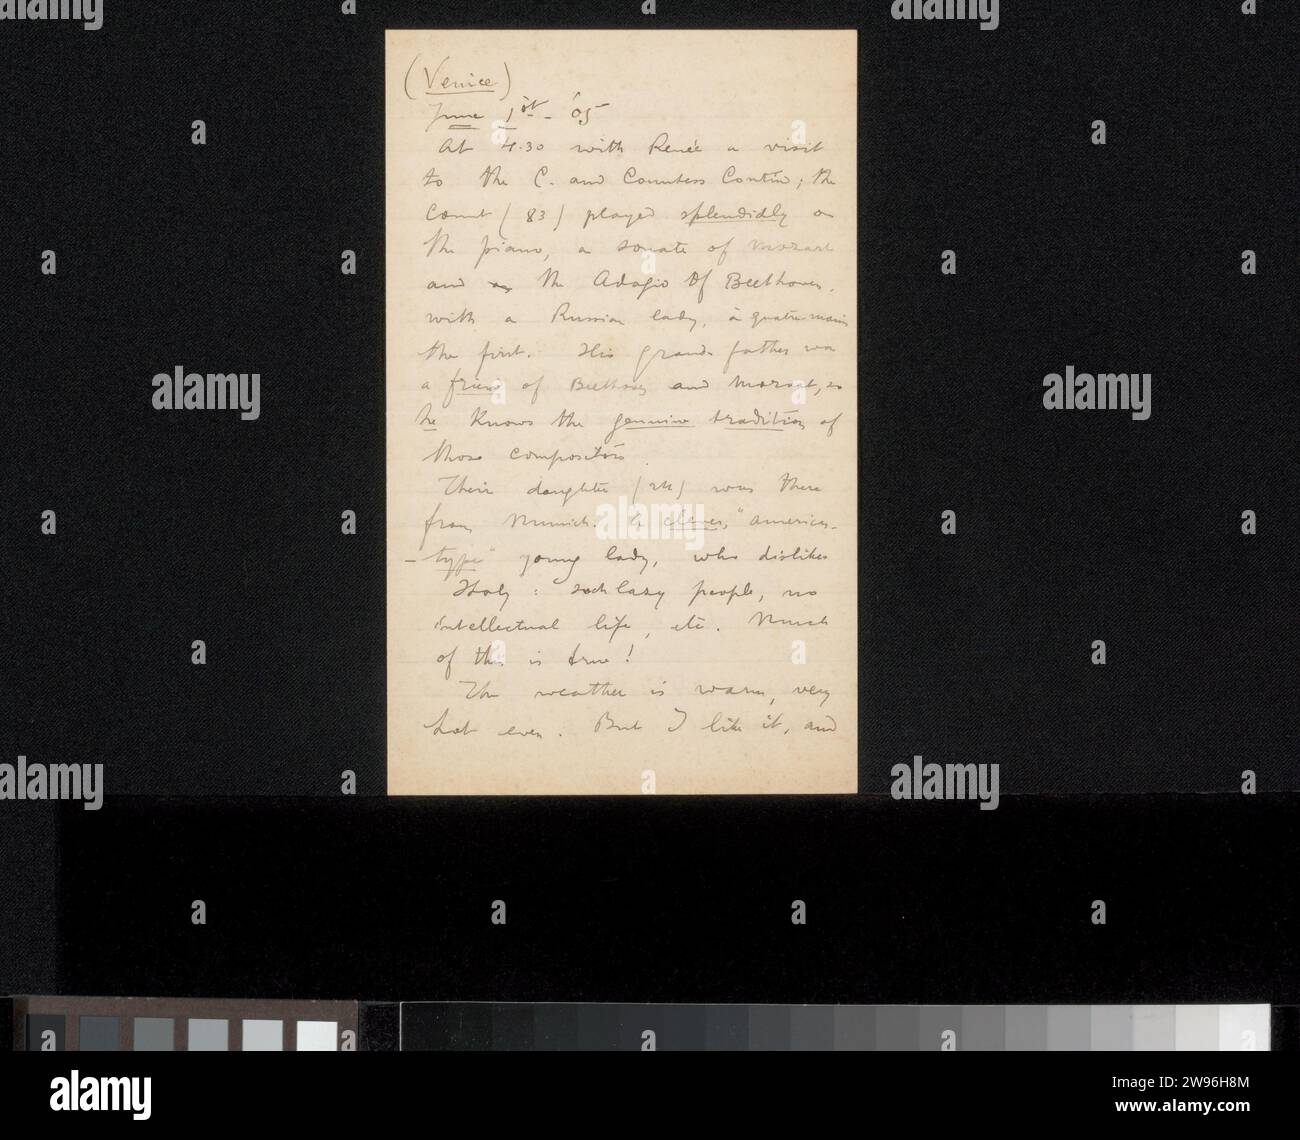 (Venice)
June 1st - '05
At 4.30 with Renée a visit
to the C. and Countess Contin; the
Count (83) played splendidly on
the piano, a sonate of Mozart
and the Adagio of Beethoven,
with a Russian lady, à quatre mains
the first. His grandfather was
a friend of Beethoven and Mozart, so
he knows the genuine tradition of
those compositors.
Their daughter was there
from Munich. A clever, "american-
-type" young lady, who dislikes
Italy: such lazy people, no
intellectual life, etc. Much
of this is true!
The weather is warm, very
hot even. But I like it, and
alamy
Image ID: 2W96H8M
www.alamy.com